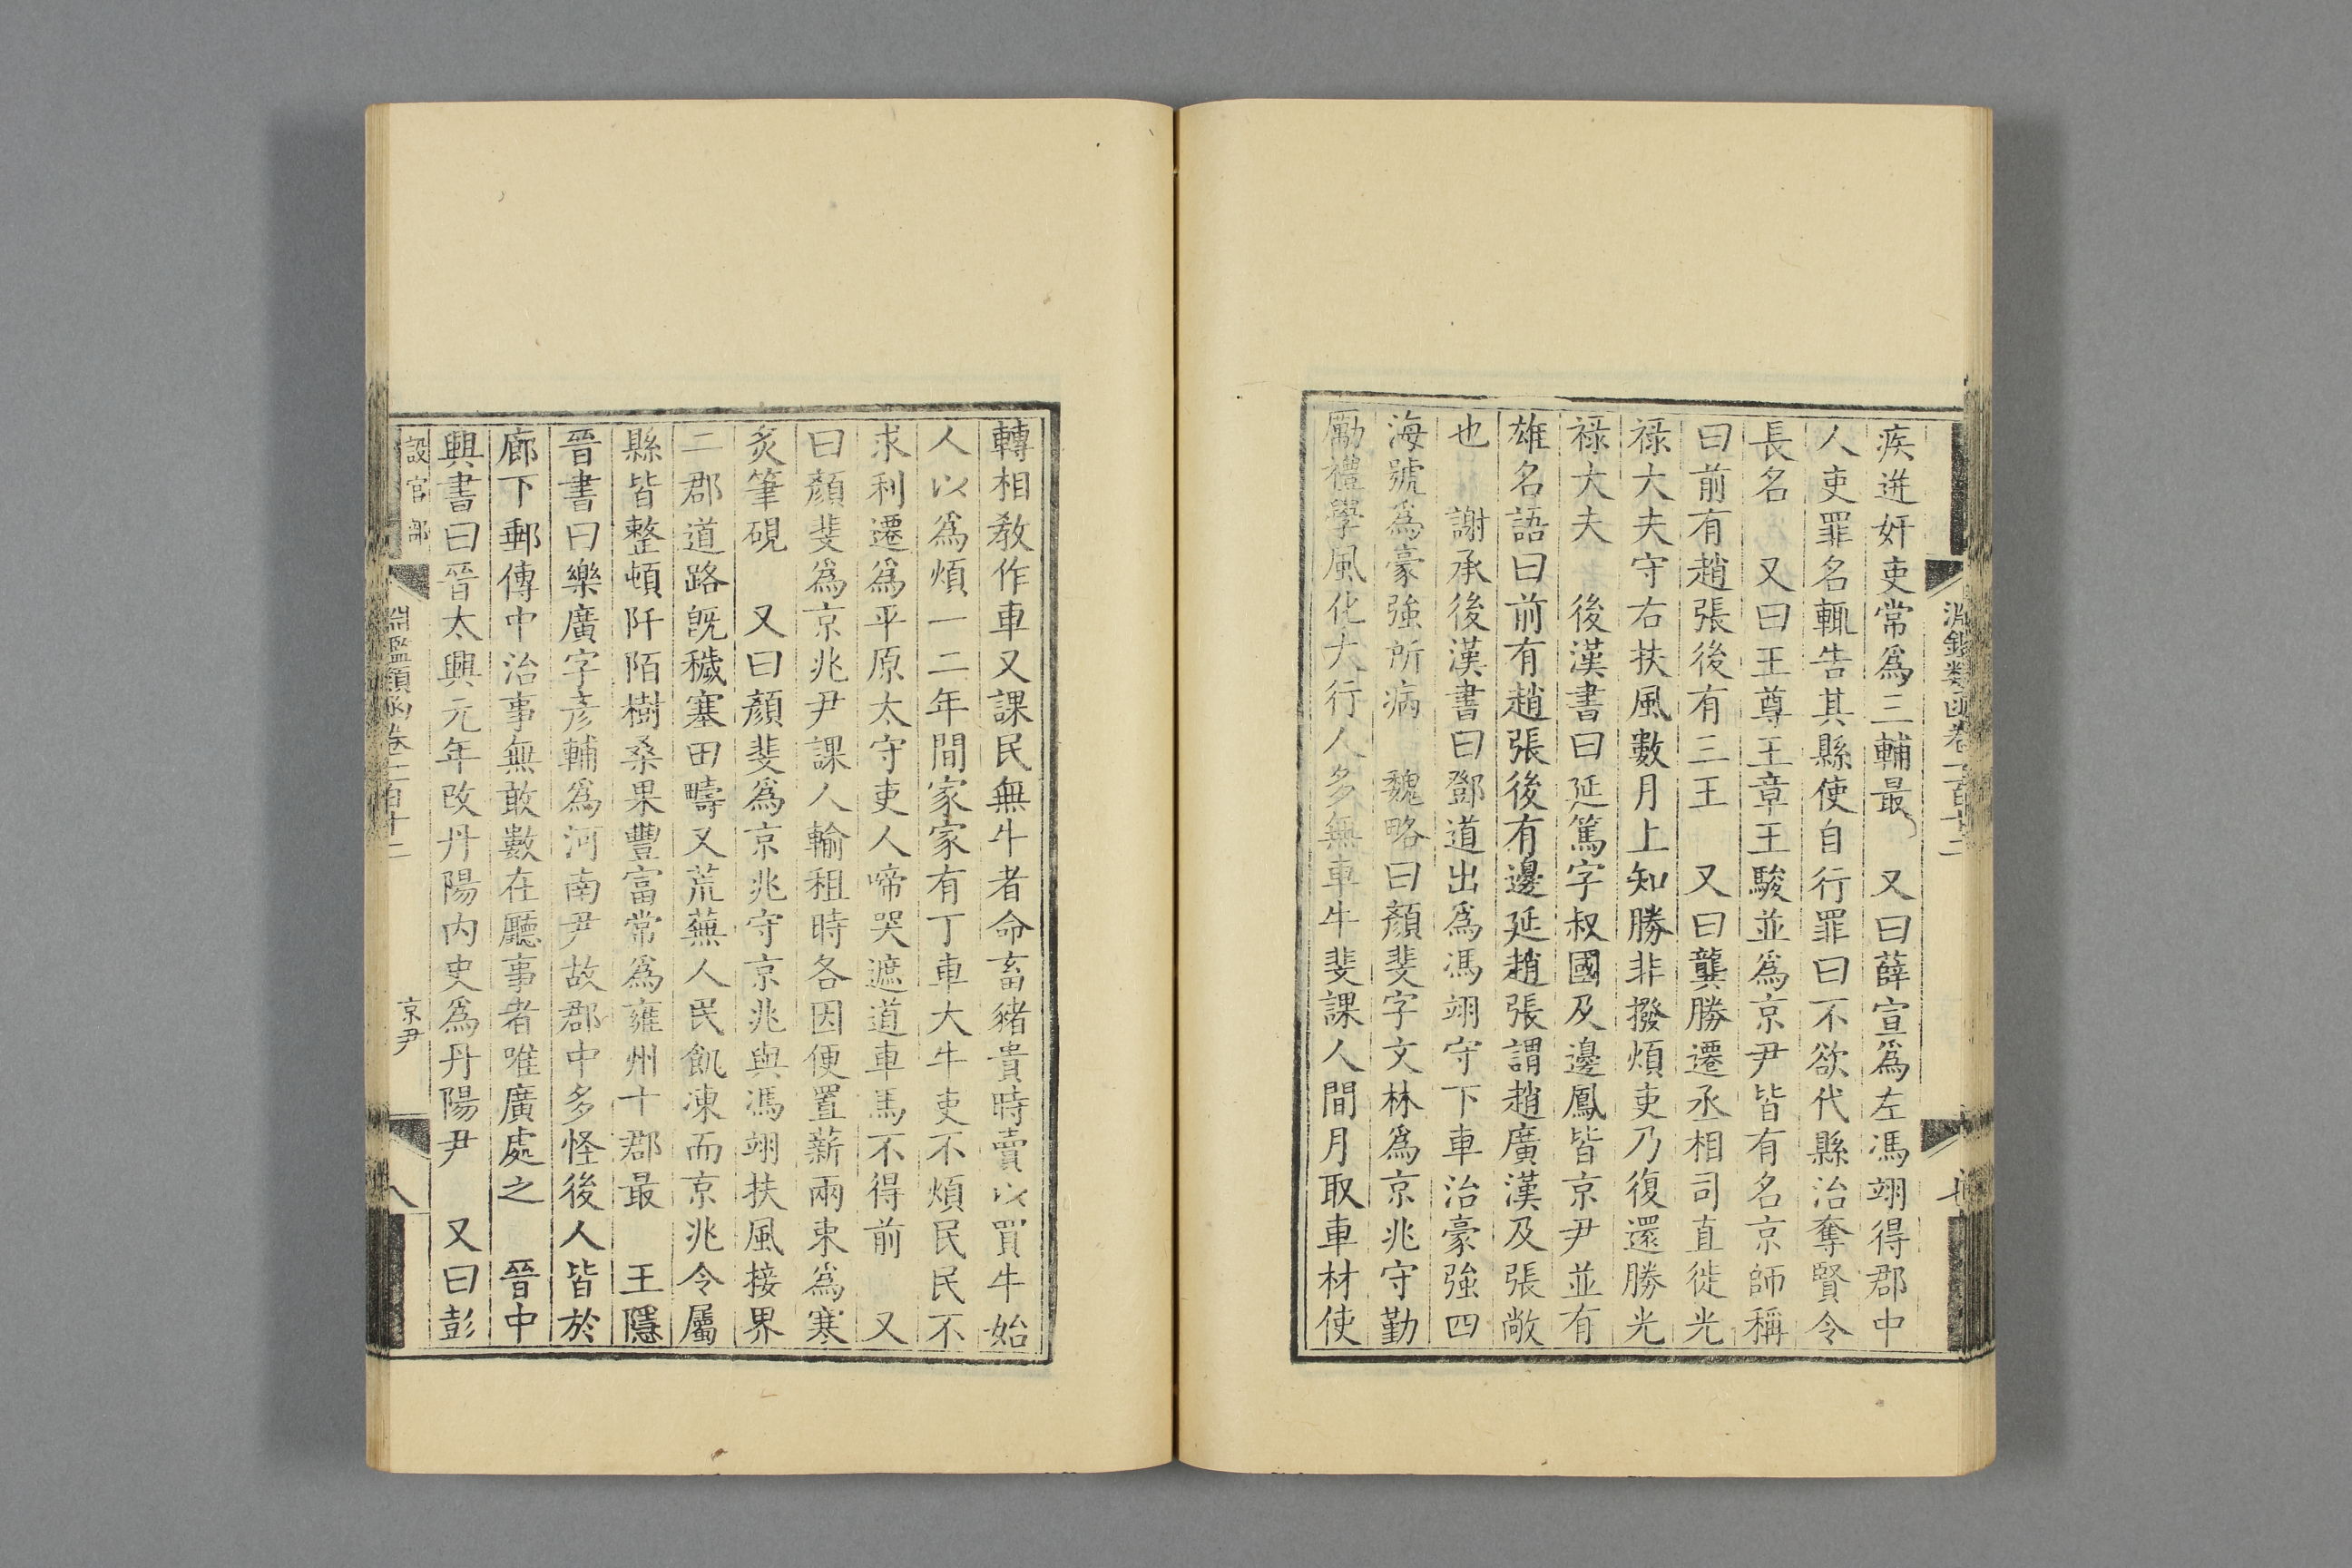 淵鑑類函卷一百十二
疾迸奸吏常爲三輔最　又曰薛宣爲左馮翊得郡中
人吏罪名輒告其縣使自行罪曰不欲代縣治奪賢令
長名　又曰王尊王章王駿並爲京尹皆有名京師稱
曰前有趙張後有三王　又曰龔勝遷丞相司直徙光
祿大夫守右扶風數月上知勝非撥煩吏乃復還勝光
祿大夫　後漢書曰延篤字叔國及邊鳳皆京尹並有
雄名語曰前有趙張後有邊延趙張謂趙廣漢及張敞
也　謝承後漢書曰鄧道出爲馮翊守下車治豪強四
海號爲豪強所病　魏略曰顏斐字文林爲京兆守勤
勵禮學風化大行人多無車牛斐課人間月取車材使
轉相教作車又課民無牛者命畜豬貴時賣以買牛始
人以爲煩一二年間家家有丁車大牛吏不煩民民不
求利遷爲平原太守吏人啼哭遮道車馬不得前　又
曰顏斐爲京兆尹課人輸租時各因便置薪兩束爲寒
炙筆硯　又曰顏斐爲京兆守京兆與馮翊扶風接界
二郡道路旣穢塞田疇又荒蕪人民飢凍而京兆令屬
縣皆整頓阡陌樹桑果豐富常爲雍州十郡最　王隱
晉書曰樂廣字彥輔爲河南尹故郡中多怪後人皆於
廊下郵傳中治事無敢數在廳事者唯廣處之　晉中
興書曰晉太興元年改丹陽內史爲丹陽尹　又曰彭
設官部　淵鑑類函卷一百十二　京尹　八